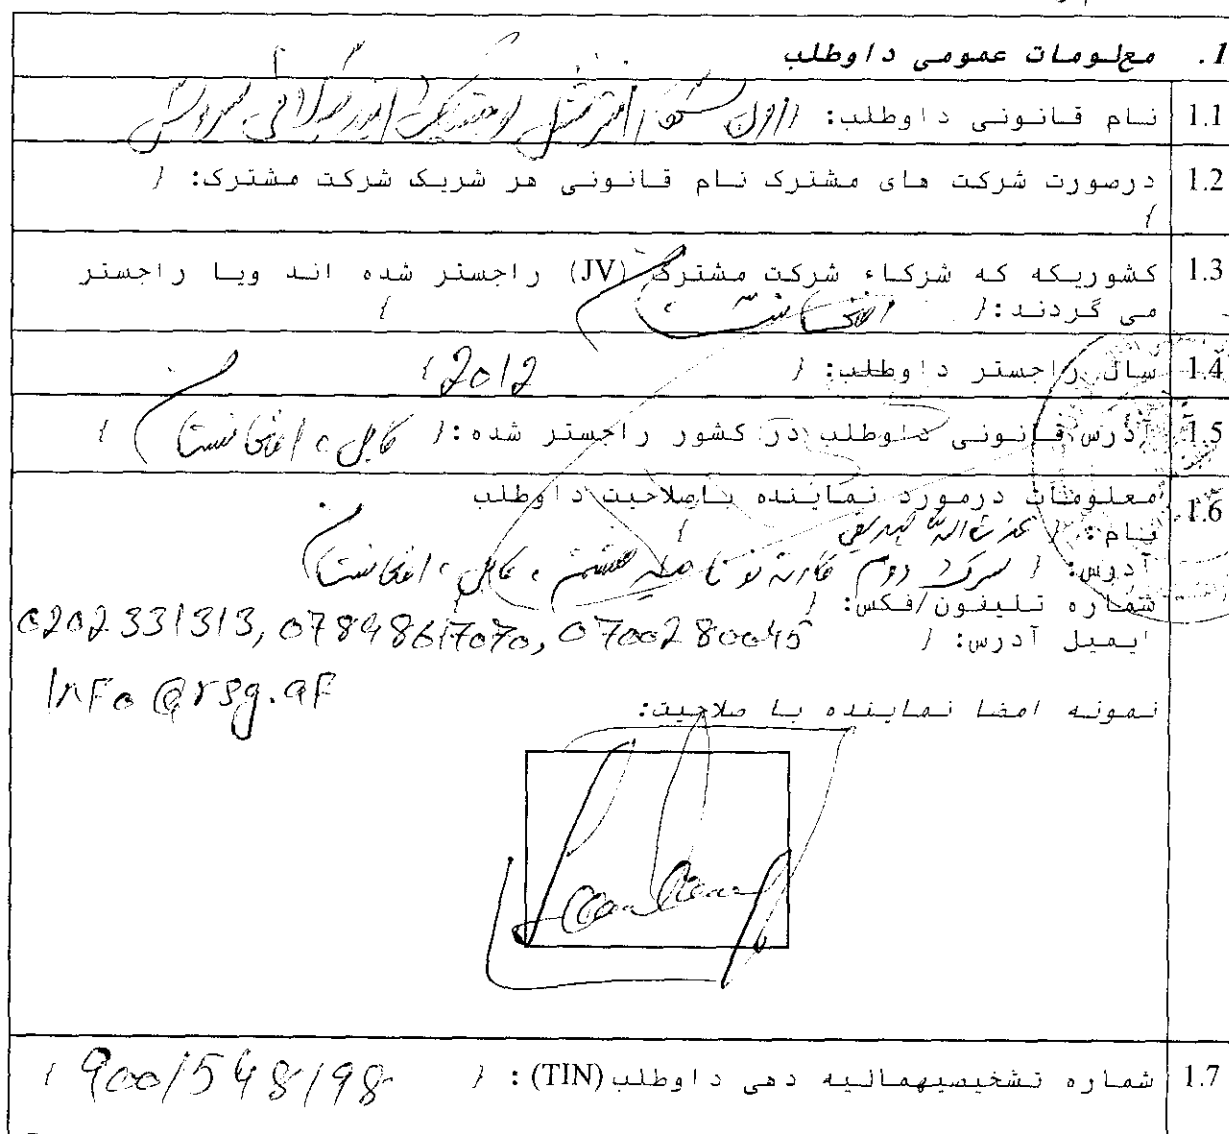 1. معلومات عمومی داوطلب
1.1 نام قانونی داوطلب: { انترنشنل لوجستیک اند سپلائی سرویس
1.2 درصورت شرکت های مشترک نام قانونی هر شریک شرکت مشترک: {
}
1.3 کشوریکه که شرکاء شرکت مشترک (JV) راجستر شده اند ویا راجستر
می گردند: { افغانستان }
1.4 سال راجستر داوطلب: { 2012 }
1.5 آدرس قانونی داوطلب در کشور راجستر شده: { کابل، افغانستان }
1.6 معلومات درمورد نماینده باصلاحیت داوطلب
نام: { }
آدرس: { سرک دوم کارته نو ناحیه هشتم، کابل، افغانستان
شماره تلیفون/فکس: {
0202331313, 07898617070, 0700280045
ایمیل آدرس: {
Info@rsg.af
نمونه امضا نماینده با صلاحیت:
1.7 شماره تشخیصیهمالیه دهی داوطلب (TIN): { 9001548198 }